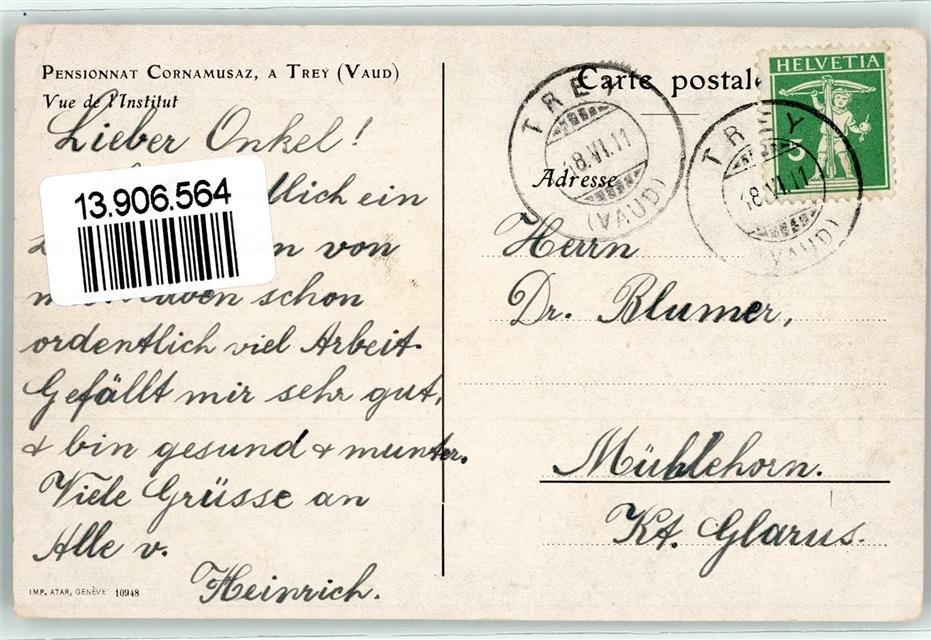 PENSIONNAT CORNAMUSAZ, A TREY (VAUD)
Vue de l'Institut
Lieber Onkel!
ein
von
schon
ordentlich viel Arbeit.
Gefällt mir sehr gut,
& bin gesund & munter.
Viele Grüsse an
Alle v.
Heinrich.
IMP. ATAR, GENÈVE 10948
13.906.564
Carte postale
HELVETIA
5
TREY
18.VI.11
(VAUD)
TREY
18.VI.11
(VAUD)
Adresse
Herrn
Dr. Blumer,
Mühlehorn.
Kt. Glarus.